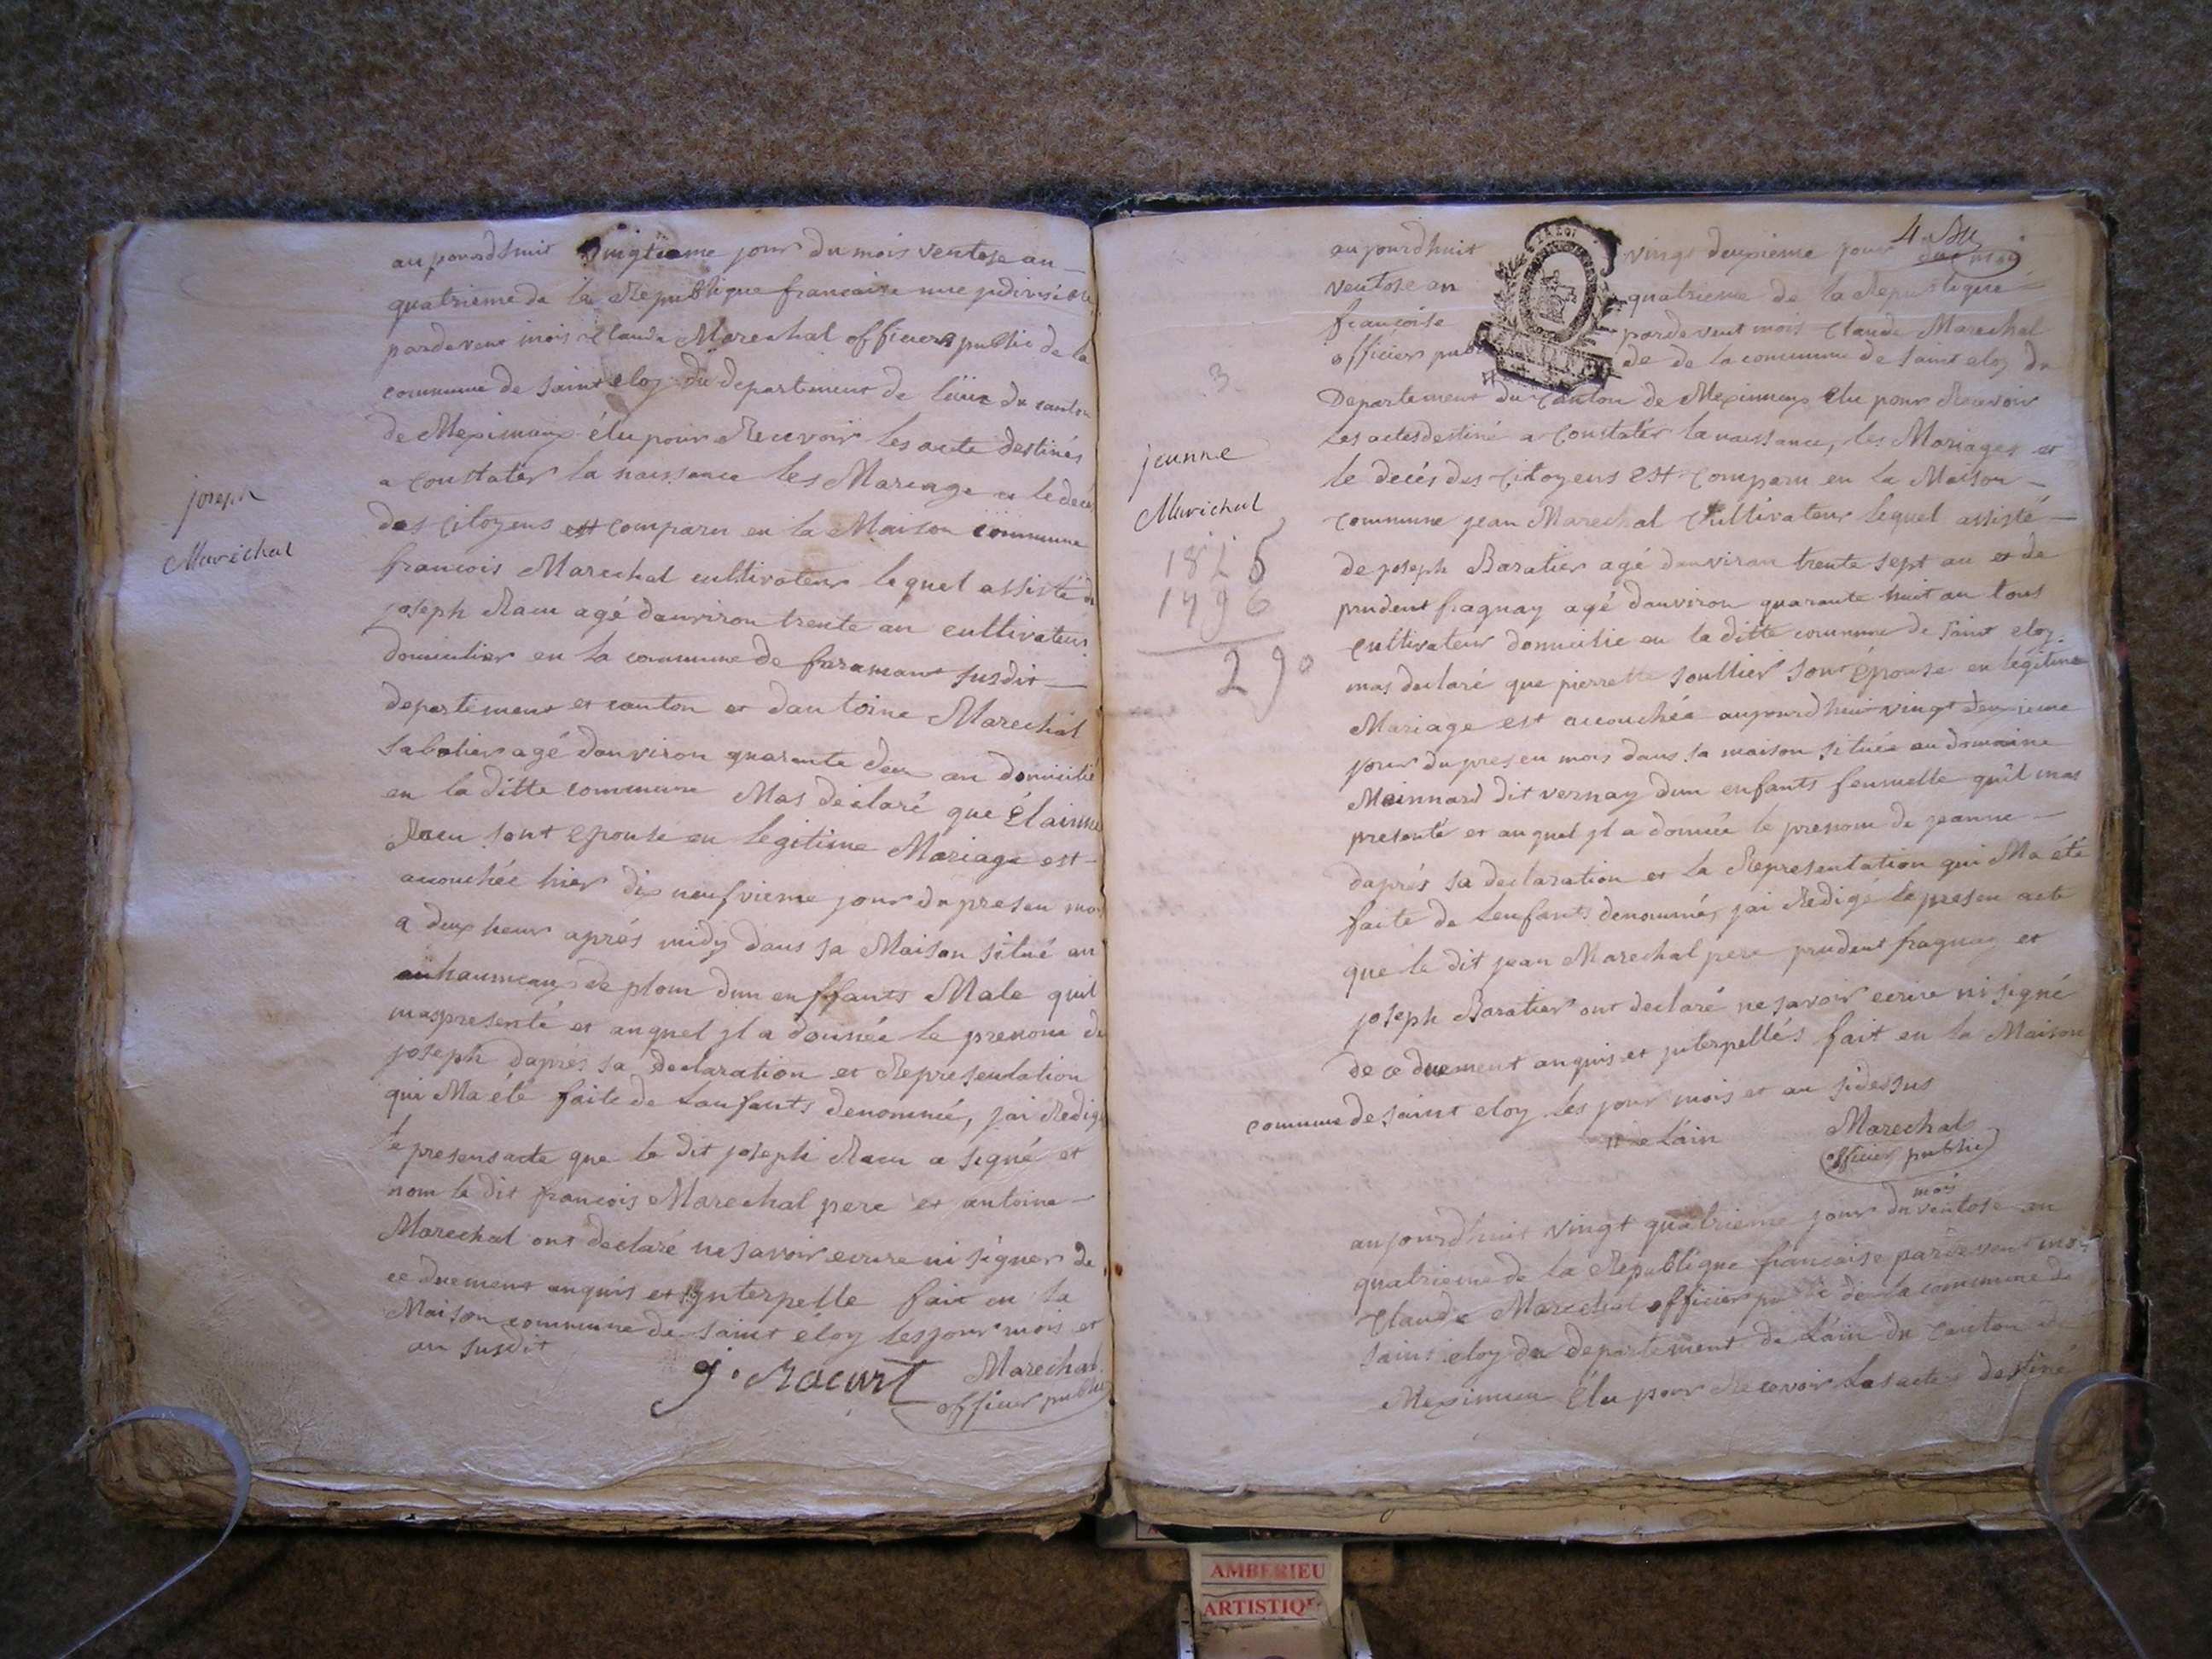 joseph
Maréchal
aujourdhuit vingtieme jour du mois ventose an
quatrieme de la Republique francaise une jndivisible
pardevent mois Claude Marechal officier public de la
commune de saint eloy du departement de du canton
de Meximieux élu pour Recevoir les acte destinés
a constater la naissance les Mariage et le decés
des citoyens est comparu en la Maison commune
francois Marechal cultivateur lequel assisté de
joseph Racu agé danviron trente an cultivateur
domicilier en la commune de faramant susdit
departement et canton et dantoine Marechal
sabotier agé danviron quarante deux an domicilié
en la ditte commune Mas declaré que Élainne
Racu sont epouse en legitime Mariage est
acouchée hier dix neufvieme jour du presen mois
a deux heur aprés midy dans sa Maison situé au
haumeaux de plom dun enffants Male quil
mas presenté et auquel jl a donnée le prenom de
joseph daprés sa declaration et Representation
qui Ma été faite de Lanfants denommée, jai Redigé
le presens acte que le dit joseph Racu a signé et
nom le dit francois Marechal pere et antoine
Marechal ont declaré ne savoir ecrire ni signer de
ce duement anquis et jnterpelle fait en la
Maison commune de saint éloy les jour mois et
an susdit
J. Racurt Marechal
officier public
4
3
jeanne
Maréchal
1825
1796
29
aujourdhuit vingt deuxieme jour du mois
ventose an quatrieme de la Republique
françoise pardevent mois Claude Marechal
officier public de de la commune de saint eloy du
Departement du Canton de Meximieux elu pour Recevoir
Les actes destiné a constater la naissance, les Mariages et
le decés des Citoyens est comparu en la Maison
commune jean Marechal Cultivateur lequel assisté
de joseph Baratier agé danviron trente sept an et de
prudent fragnay agé danviron quarante huit an tous
cultivateur domicilie en la ditte commune de saint eloy
mas declaré que pierrette soullier sont épouse en legitime
Mariage est acouchée aujourdhuit vingt deuxieme
jour du presen mois dans sa maison située au domaine
Moinnard dit vernay dun enfants femelle quil mas
presenté et auquel jl a donnée le prenom de jeanne
daprés sa declaration et la Representation qui Ma été
faite de Lenfants denommé, jai Redigé le presen acte
que le dit jean Marechal pere prudent fragnay et
joseph Baratier ont declaré ne savoir ecrire ni signé
de ce duement anquis et jnterpellés fait en la Maison
commune de saint eloy les jour mois et an sidessus
Marechal
officier public
aujourdhuit vingt quatrieme jour du mois ventose an
quatrieme de la Republique francaise pardevent mois
Claude Marechal officier public de la commune de
saint eloy du departement de Láin du Canton de
Meximieu Élu pour Recevoir Les actes destiné
AMBERIEU
ARTISTIQ